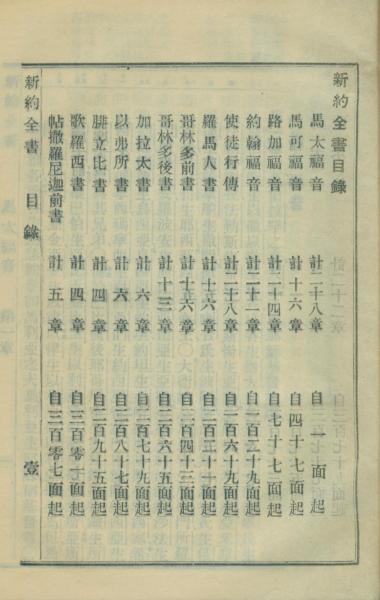 新約全書目錄
馬太福音 計二十八章 自一面起
馬可福音 計十六章 自四十七面起
路加福音 計二十四章 自七十七面起
約翰福音 計二十一章 自一百二十九面起
使徒行傳 計二十八章 自一百六十九面起
羅馬人書 計十六章 自二百二十一面起
哥林多前書 計十六章 自二百四十三面起
哥林多後書 計十三章 自二百六十五面起
加拉太書 計六章 自二百七十九面起
以弗所書 計六章 自二百八十七面起
腓立比書 計四章 自二百九十五面起
歌羅西書 計四章 自三百零一面起
帖撒羅尼迦前書 計五章 自三百零七面起
新約全書 目錄 壹